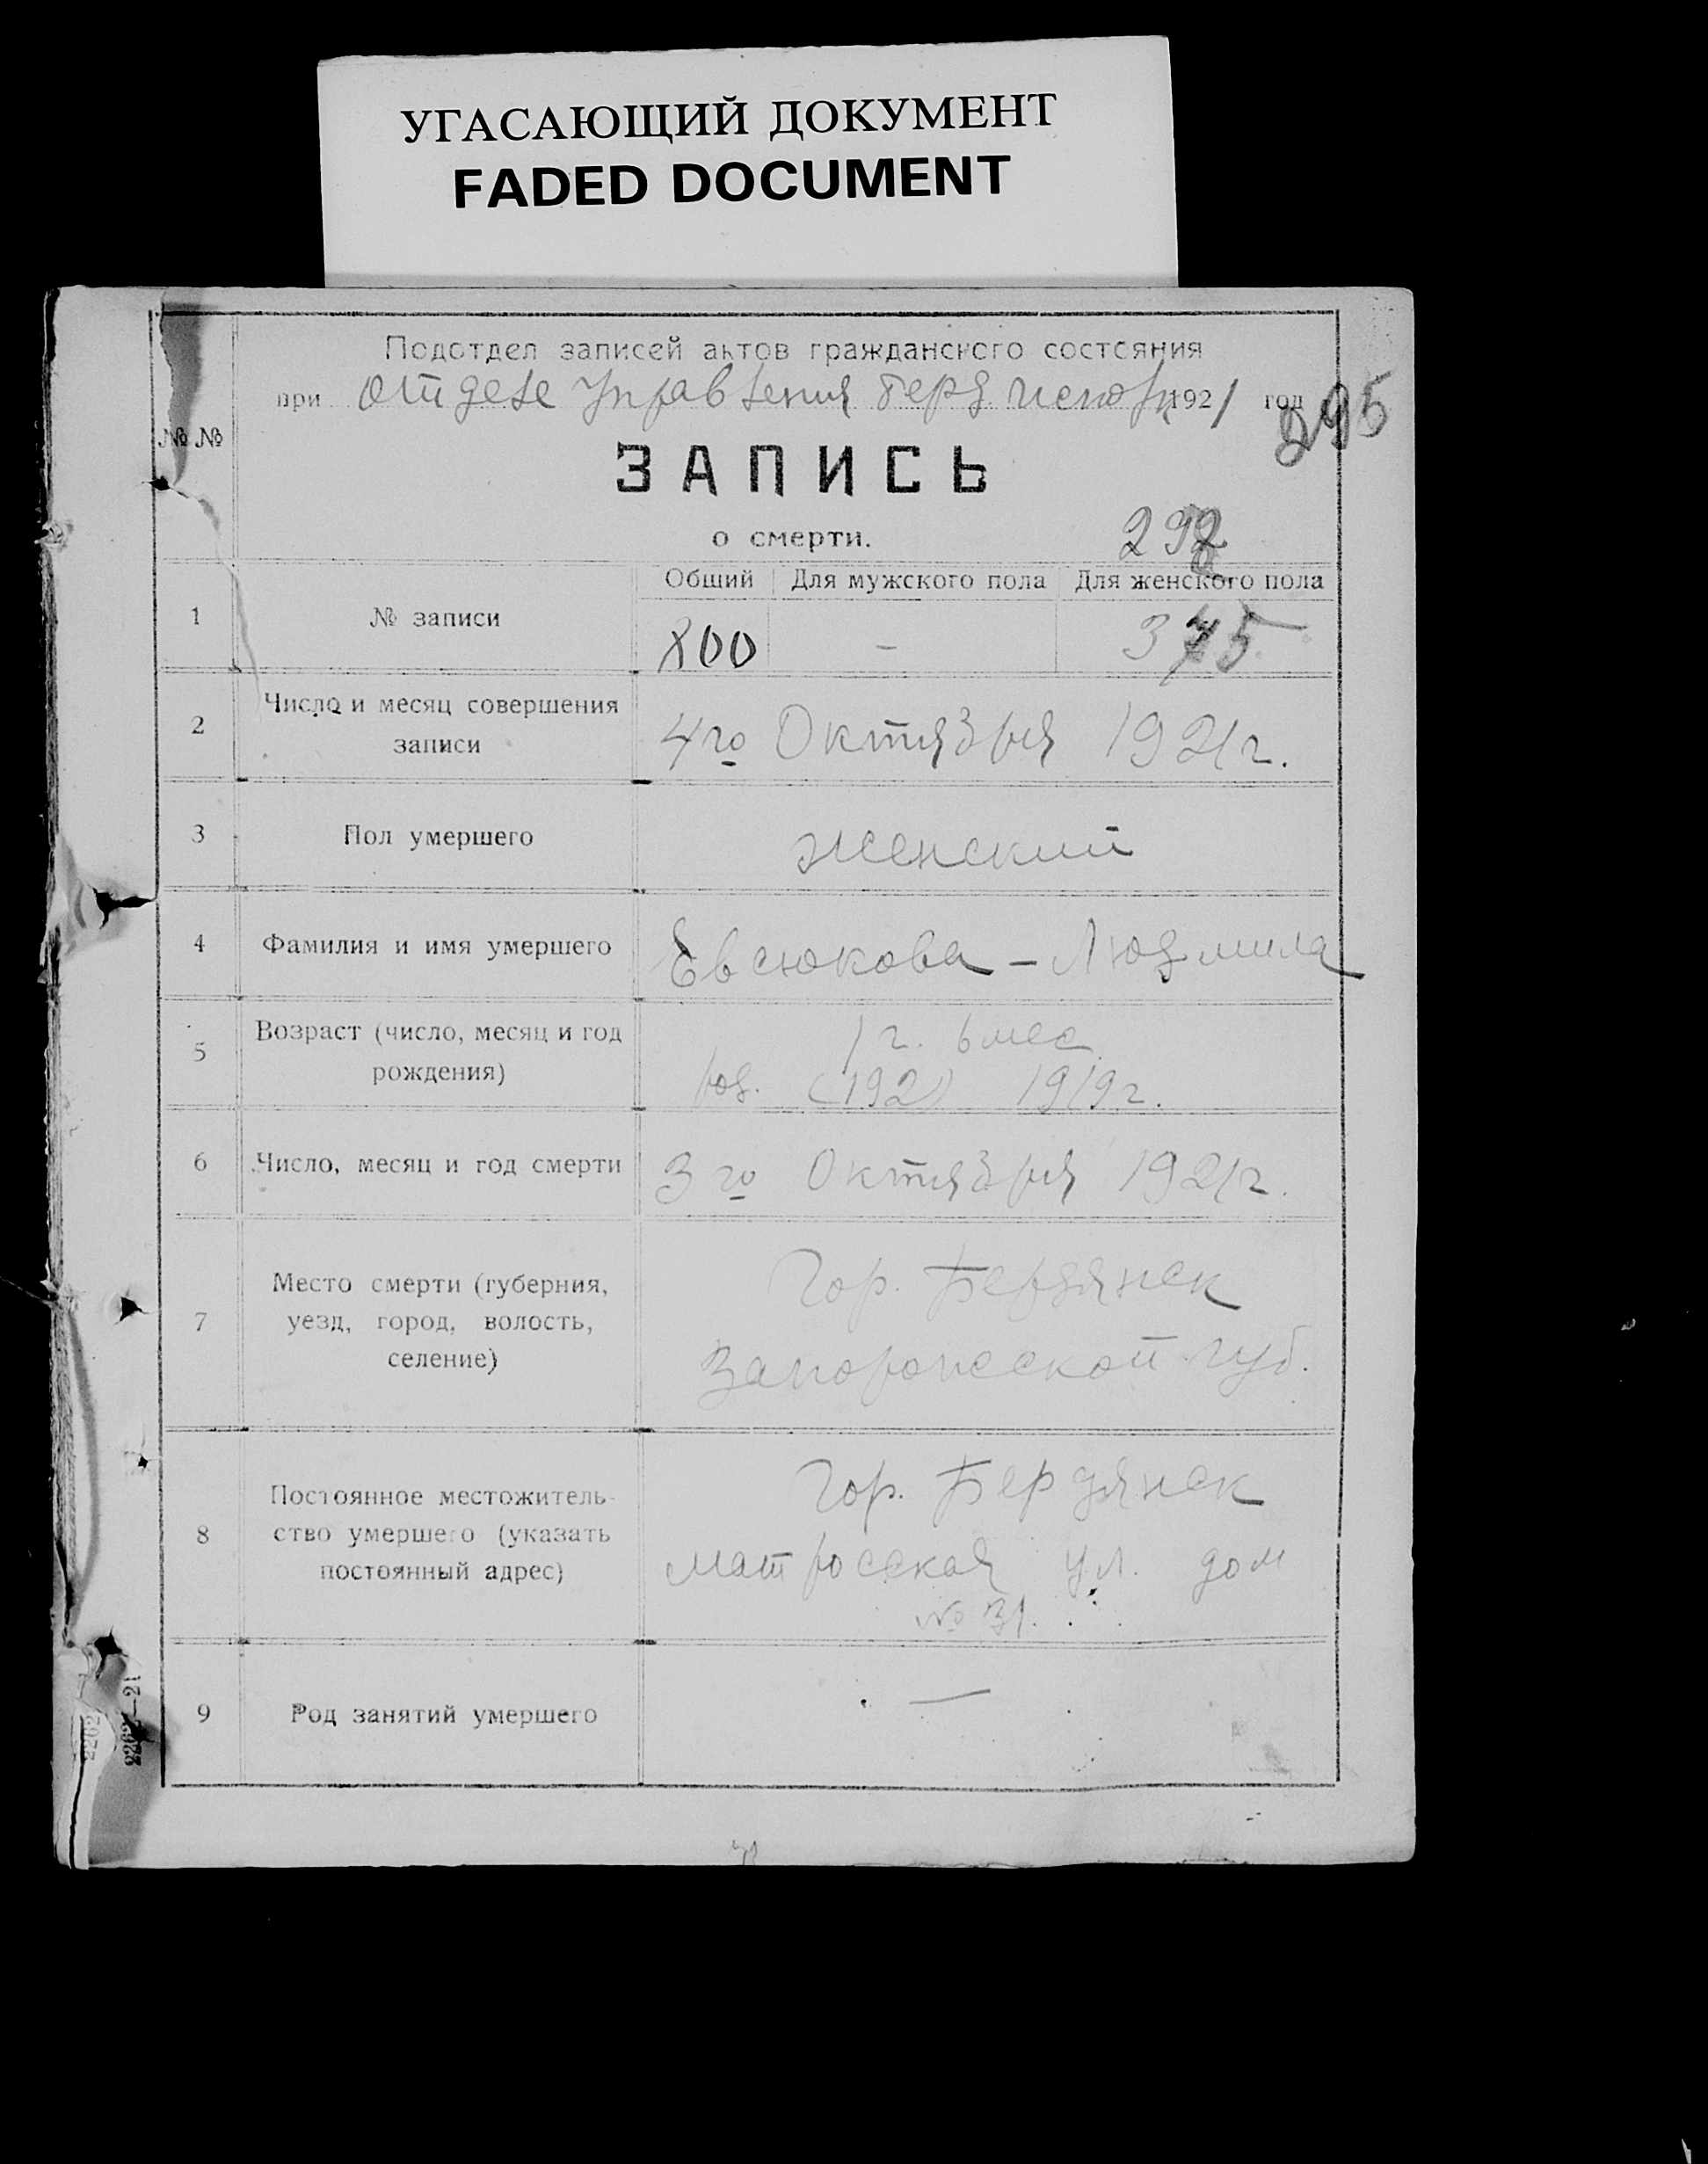 УГАСАЮЩИЙ ДОКУМЕНТ
FADED DOCUMENT
Подотдел записей актов гражданского состояния
при отделе Управления 1921 год
295
№ №
ЗАПИСЬ
о смерти.
292
Общий Для мужского пола Для женского пола
1 № записи 800 - 375
2 Число и месяц совершения
записи
4го Октября 1921г.
3 Пол умершего Женский
4 Фамилия и имя умершего Евсюкова - Людмила
5 Возраст (число, месяц и год
рождения)
1 г. 6 мес.
род. (192) 1919г.
6 Число, месяц и год смерти 3го Октября 1921г.
7 Место смерти (губерния,
уезд, город, волость,
селение)
Гор. Бердянск
Запорожской губ.
8 Постоянное местожитель-
ство умершего (указать
постоянный адрес)
Гор. Бердянск
Матросская ул. дом
№ 31.
9 Род занятий умершего —